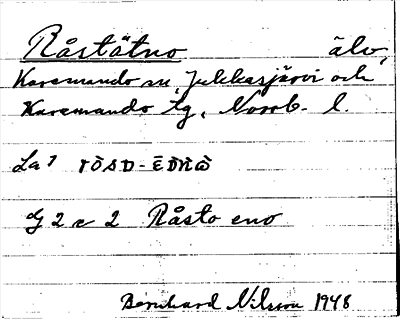 Råstätno älv,
Karesuando sn, Jukkasjärvi och
Karesuando tg, Norrb. l.
La 7 rȱsᴅ-ēᴅnɷ̀
G 2 c 2 Råsto eno
Bernhard Nilsson 1948